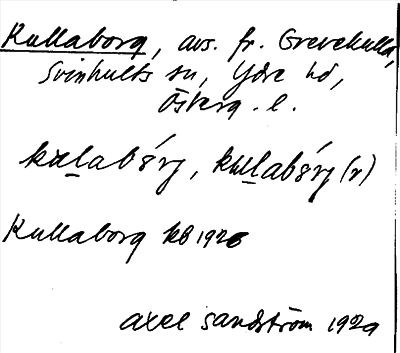 Kullaborg, avs. fr. Grevekulla,
Svinhults sn, Ydre hd,
Österg. l.
kulabórj, kullabórj (r)
Kullaborg kb 1926
Axel Sandström 1929